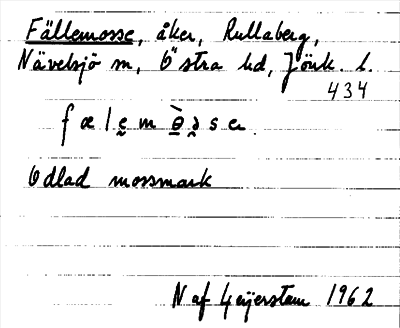 Fällemosse, åker, Rullaberg,
Nävelsjö sn, Östra hd, Jönk. l.
434
Odlad mossmark
N af Geijerstam 1962